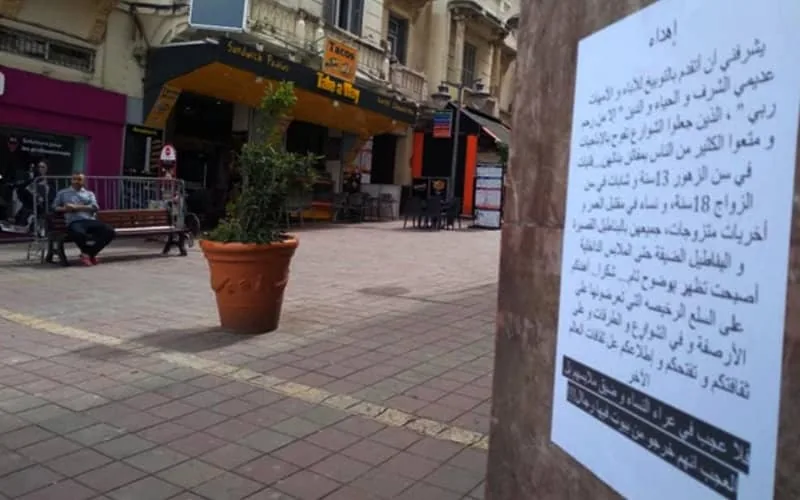 Sandwich Panini
Tacos
Take a Way
إهداء
يشرفني ان أتقدم بالتوبيخ للأباء و الأمهات
عديمي الشرف و الحياء و الدين "إلا من رحم
ربي" ، الذين جعلوا الشوارع تفوح بالإباحيات
و متعوا الكثير من الناس بمفاتن بناتهن.. فتيات
في سن الزهور 13سنة و شابات في سن
الزواج 18سنة، و نساء في مقتبل العمر و
أخريات متزوجات، جميعهن بالبناطل القصيرة
و اليفاطيل الضيقة حتى الملابس الداخلية
أصبحت تظهر بوضوح تام... شكرا.. أهنئكم
على السلع الرخيصه التي تعرضونها على
الأرصفة و في الشوارع و الطرقات و على
ثقافتكم و تفتحكم و إطلاعكم عل ثقافات العالم
الأخر
فلا عجب في عراء النساء و ضيق ملابسهم بل
العجب انهم خرجو من بيوت فيها رجال!!!